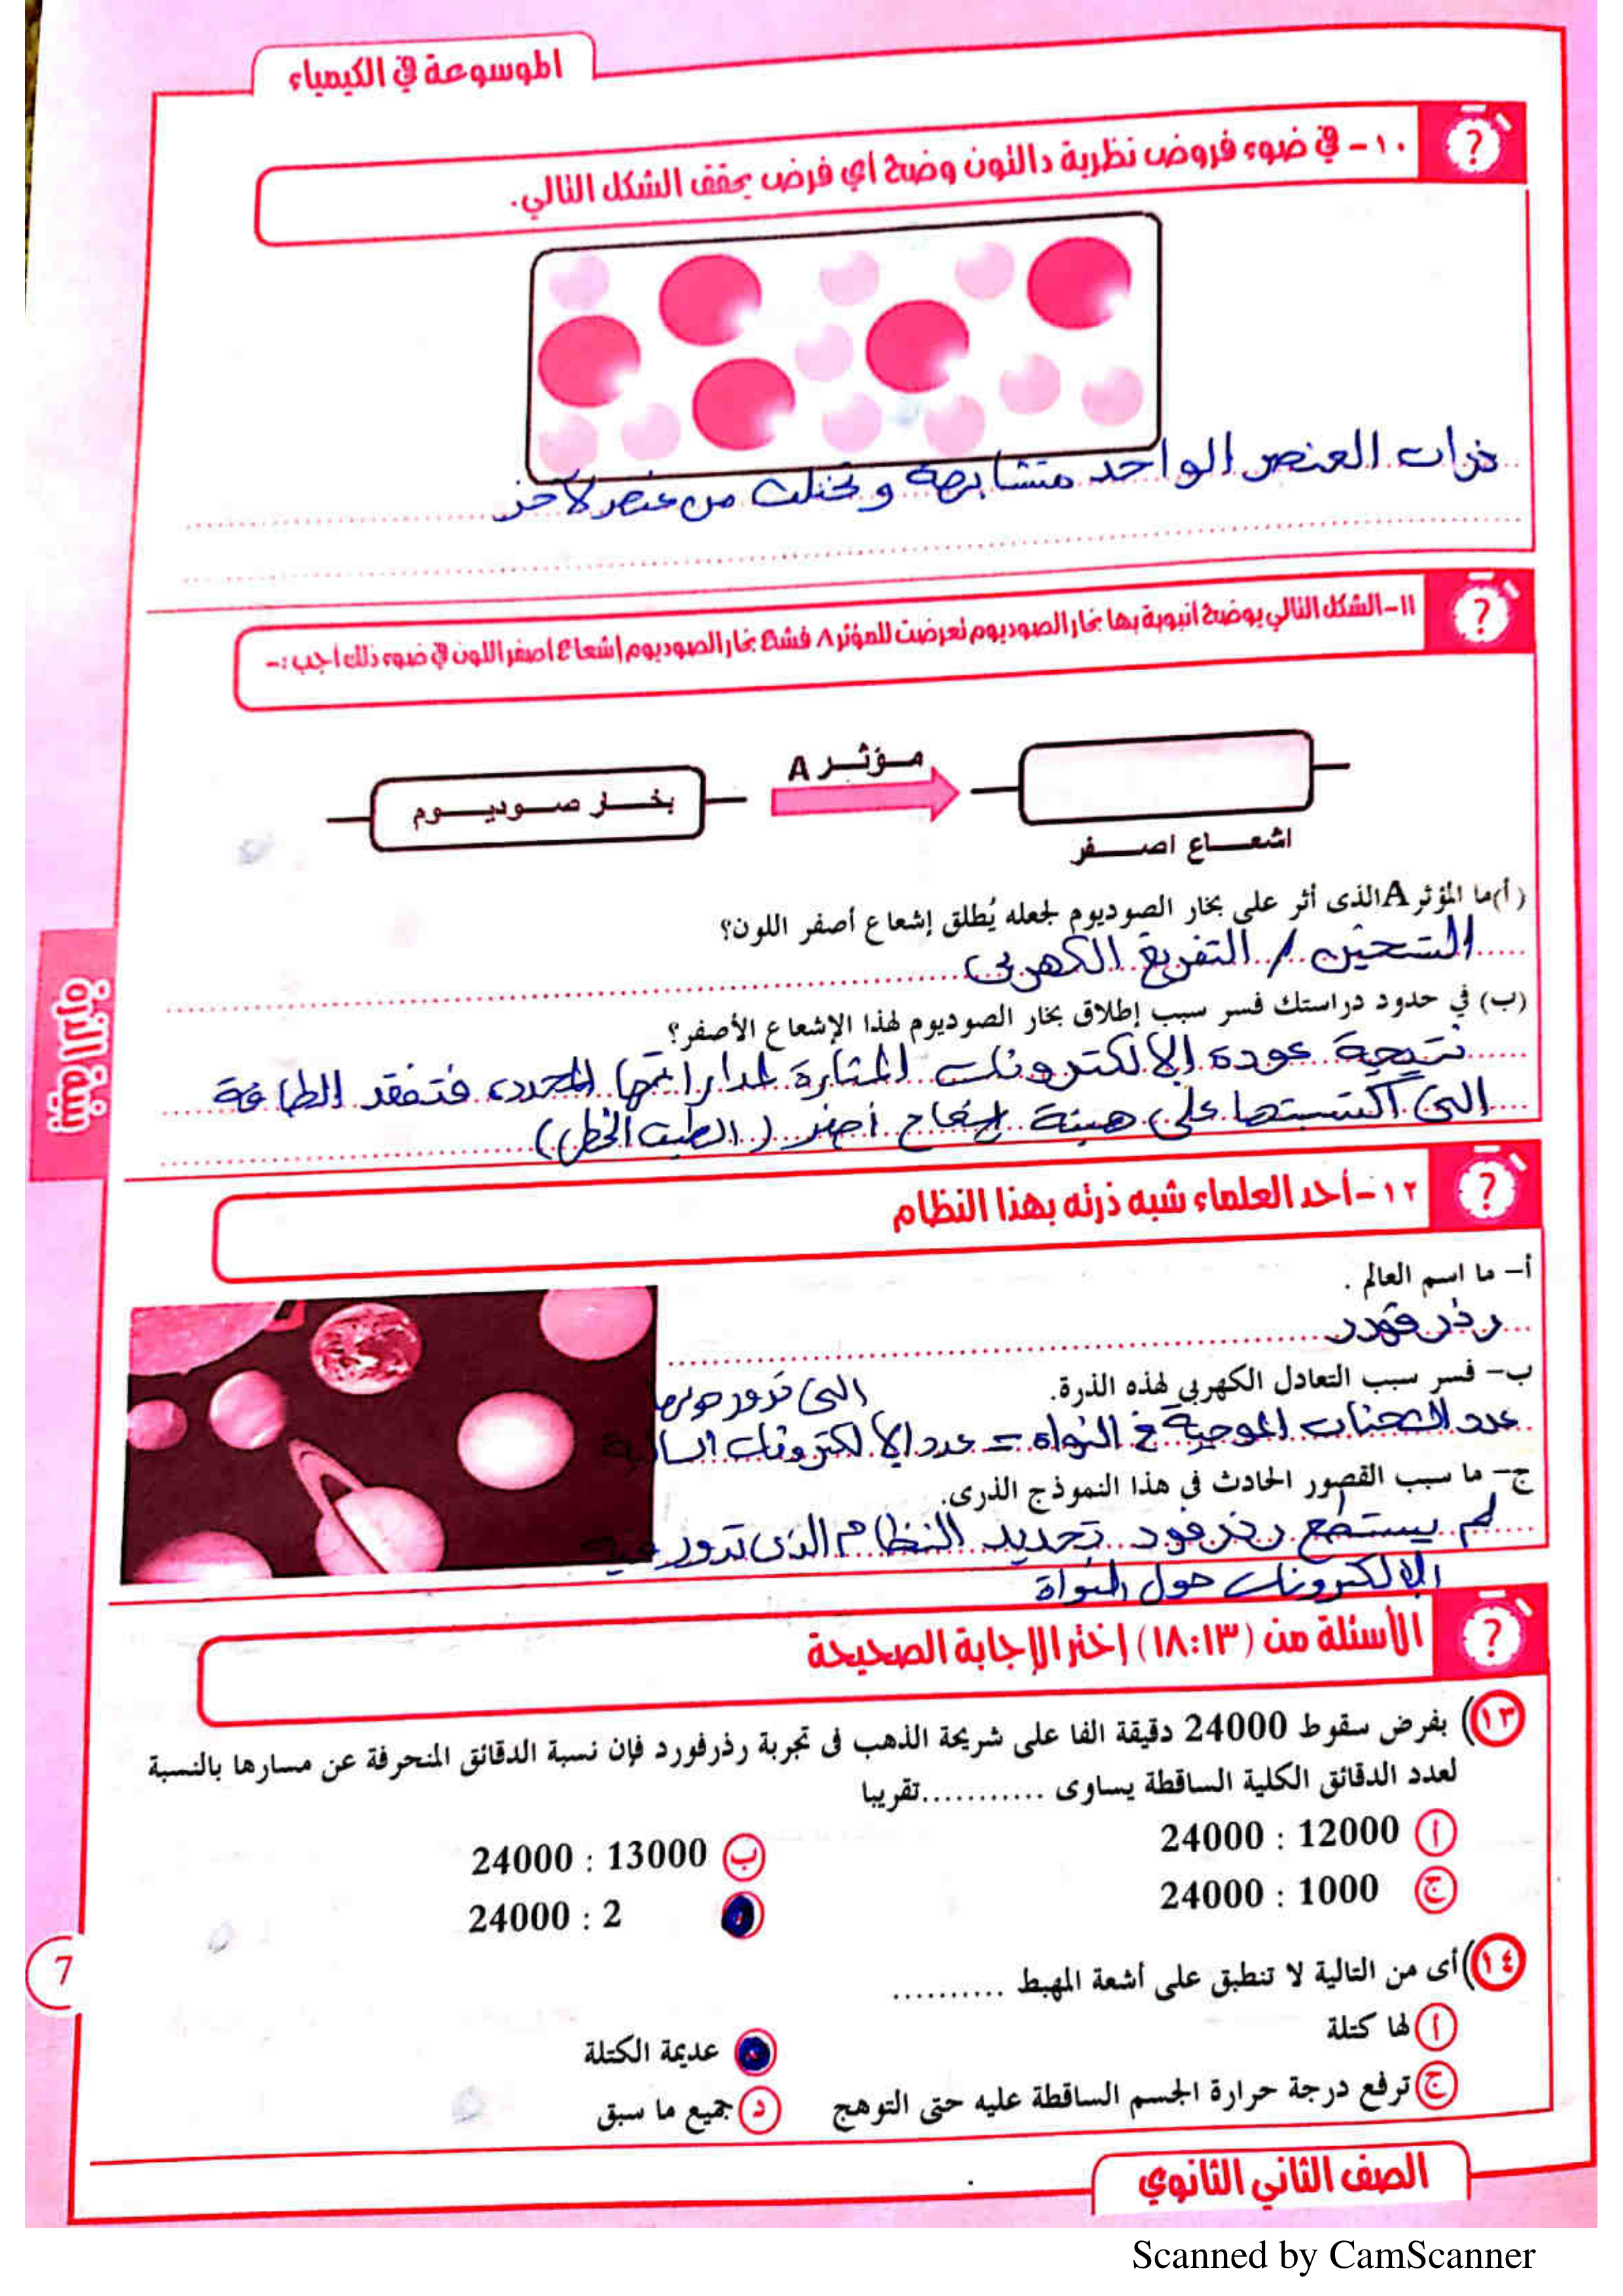 الموسوعة في الكيمياء
١٠- في ضوء فروض نظرية دالتون وضح اي فرض يحقق الشكل التالي.
ذرات العنصر الواحد متشابهة و تختلف من عنصر لآخر
١١-الشكل التالي يوضح انبوبة بها بخار الصوديوم تعرضت للمؤثر A فشع بخار الصوديوم إشعاع اصفر اللون في ضوء ذلك اجب :-
مؤثر A
بخار صوديوم
اشعاع اصفر
(أ)ما المؤثر A الذى أثر على بخار الصوديوم لجعله يُطلق إشعاع أصفر اللون؟
التسخين / التفريغ الكهربى
(ب) في حدود دراستك فسر سبب إطلاق بخار الصوديوم لهذا الإشعاع الأصفر؟
نتيجة عودة الالكترونات المثارة لمداراتها المحدده فتفقد الطاقة
التى اكتسبتها على هيئة إشعاع أصفر (الطيف الخطى)
بنية الذرة
١٢-أحد العلماء شبه ذرته بهذا النظام
أ- ما اسم العالم .
رذرفورد
ب- فسر سبب التعادل الكهربي لهذه الذرة.
التى تدور حولها
عدد الشحنات الموجبة في النواه = عدد الالكترونات السالبة
ج- ما سبب القصور الحادث في هذا النموذج الذرى.
لم يستطع رذرفورد تحديد النظام الذى تدور فيه
الالكترونات حول النواة
الأسئلة من (١٨:١٣) إختر الإجابة الصحيحة
١٣) بفرض سقوط 24000 دقيقة الفا على شريحة الذهب فى تجربة رذرفورد فإن نسبة الدقائق المنحرفة عن مسارها بالنسبة
لعدد الدقائق الكلية الساقطة يساوى ...........تقريبا
أ 12000 : 24000
ب 13000 : 24000
ج 1000 : 24000
2 : 24000
7
١٤) أى من التالية لا تنطبق على أشعة المهبط ..........
أ لها كتلة
عديمة الكتلة
ج ترفع درجة حرارة الجسم الساقطة عليه حتى التوهج
د جميع ما سبق
الصف الثاني الثانوي
Scanned by CamScanner